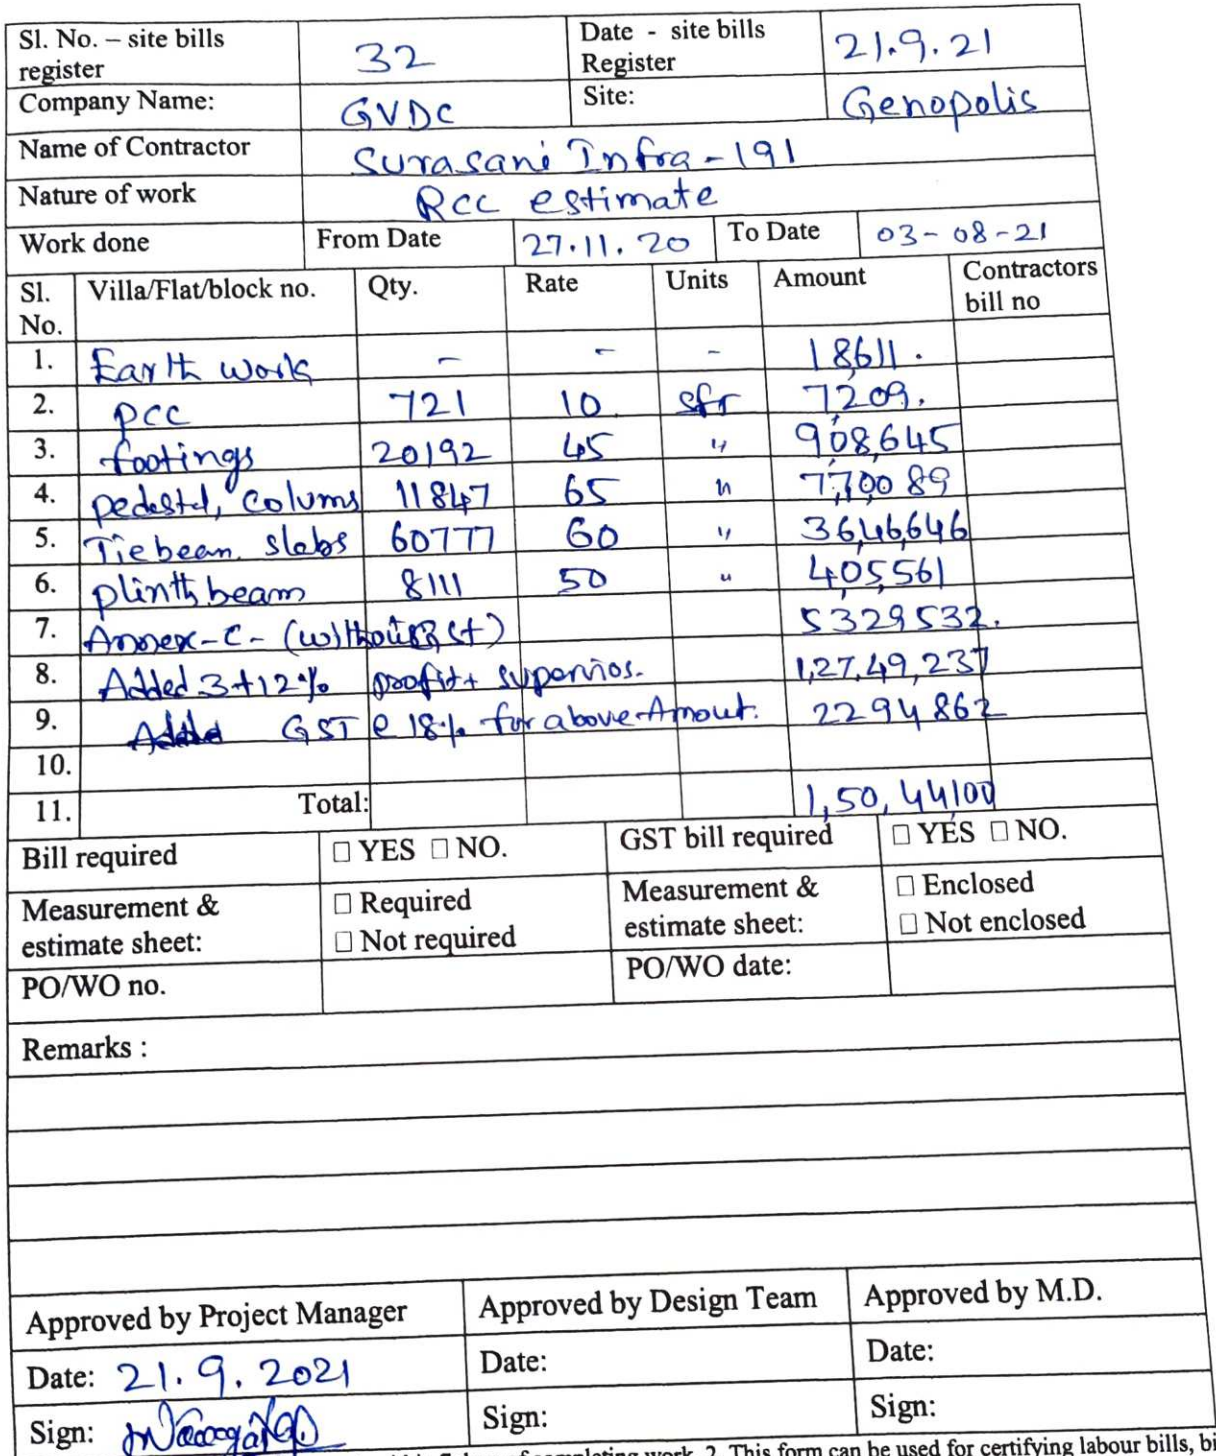 Sl. No. – site bills register 32 Date - site bills Register 21.9.21
Company Name: GVDC Site: Genopolis
Name of Contractor Surasani Infra-191
Nature of work Rcc estimate
Work done From Date 27.11.20 To Date 03-08-21
Sl. No. Villa/Flat/block no. Qty. Rate Units Amount Contractors bill no
1. Earth work - - - 18611.
2. pcc 721 10 sft 7209.
3. footings 20192 45 " 908,645
4. pedestal, colums 11847 65 " 7,70089
5. Tie beam. slabs 60777 60 " 3646,646
6. plinth beam 8111 50 " 405,561
7. Annex-C-(without st) 5329532.
8. Added 3+12% profit+ supervios. 1,27,49,237
9. Added GST @ 18%. for above Amout. 2294862
10.
11. Total: 1,50,44100
Bill required □ YES □ NO. GST bill required □ YES □ NO.
Measurement & estimate sheet: □ Required □ Not required Measurement & estimate sheet: □ Enclosed □ Not enclosed
PO/WO no. PO/WO date:
Remarks :
Approved by Project Manager Approved by Design Team Approved by M.D.
Date: 21.9.2021 Date: Date:
Sign: Sign: Sign:
completing work. 2. This form can be used for certifying labour bills, bi